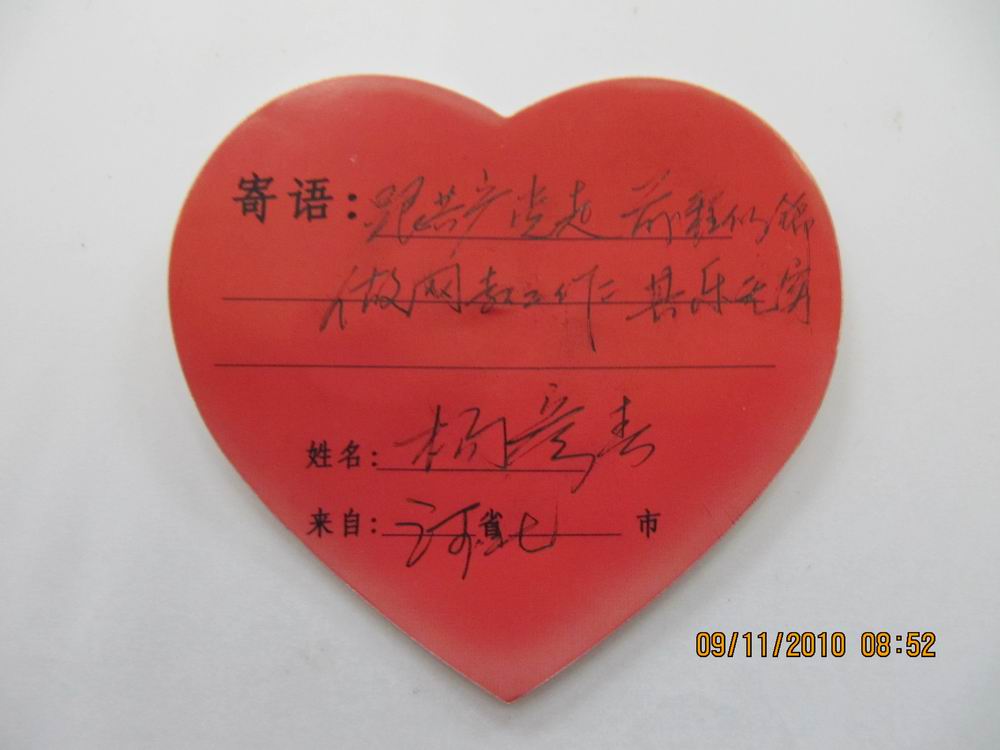 寄语：跟共产党走 前程似锦
做网教工作 其乐无穷
姓名：杨彦春
来自：河北省 市
09/11/2010 08:52